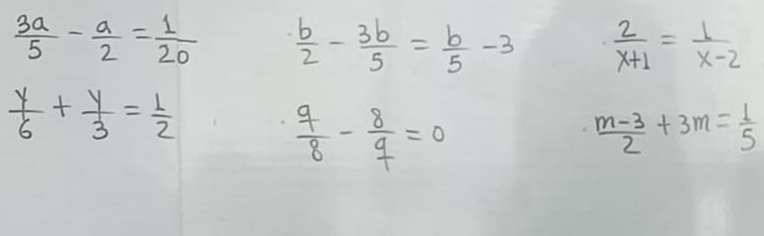 3a/5 - a/2 = 1/20
b/2 - 3b/5 = b/5 - 3
2/x+1 = 1/x-2
y/6 + y/3 = 1/2
q/8 - 8/q = 0
m-3/2 + 3m = 1/5